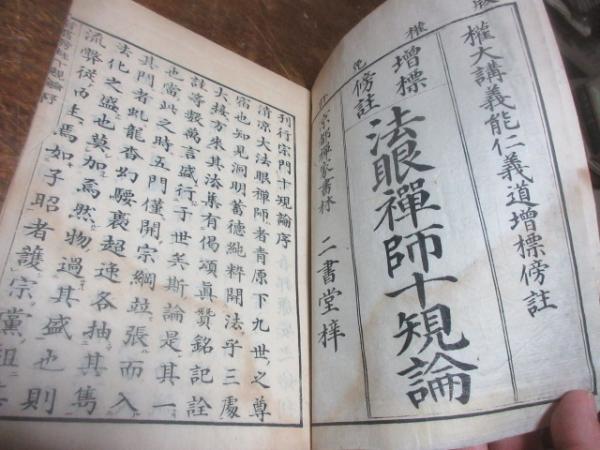 權大講義能仁義道增標傍註
增標
傍註
法眼禪師十規論
京都禪家書林 二書堂梓
刊行宗門十規論序
清凉大法眼禪師者青原下九世之尊
宿也知見洞明蓄德純粹開法乎三處
大接方來其法集有偈頌眞贊銘記詮
註等數萬言盛行于世矣斯論是其一
也當此之時五門僅開宗綱竝張而入
其門者虬龍香幻騕褭超速各抽其雋
法化之盛也莫加焉然物過其盛也則
流弊從而生焉如子昭者護宗黨